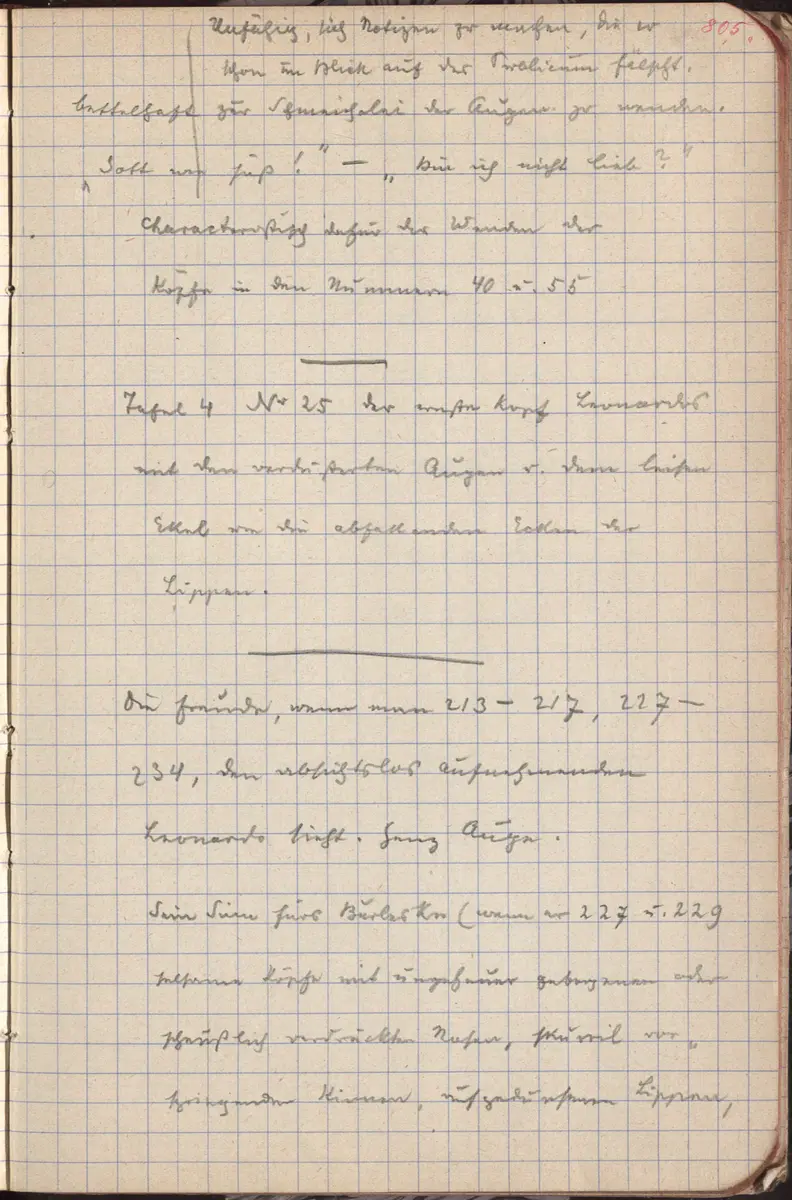 805.
Unfähig, sich Notizen zu machen, die er
schon im Blick auf das Publicum fälscht.
bettelhaft zur Schmeichelei der Augen zu wenden.
„Gott wie süß!" — „bin ich nicht lieb?"
Characteristisch dafür das Wenden der
Köpfe in den Nummern 40 u. 55
Tafel 4 Nr 25 der ernste Kopf Leonardos
mit den verdüsterten Augen u. dem leisen
Ekel um die abfallenden Ecken der
Lippen.
Die Freude, wenn man 213 – 217, 227 –
234, den absichtslos aufnehmenden
Leonardo sieht. Ganz Auge.
Sein Sinn fürs Burleske (wenn er 227 u. 229
seltsame Köpfe mit ungeheuer gebogenen oder
scheußlich verdrückten Nasen, skurril vor„
springenden Kinnen, aufgedunsenen Lippen,